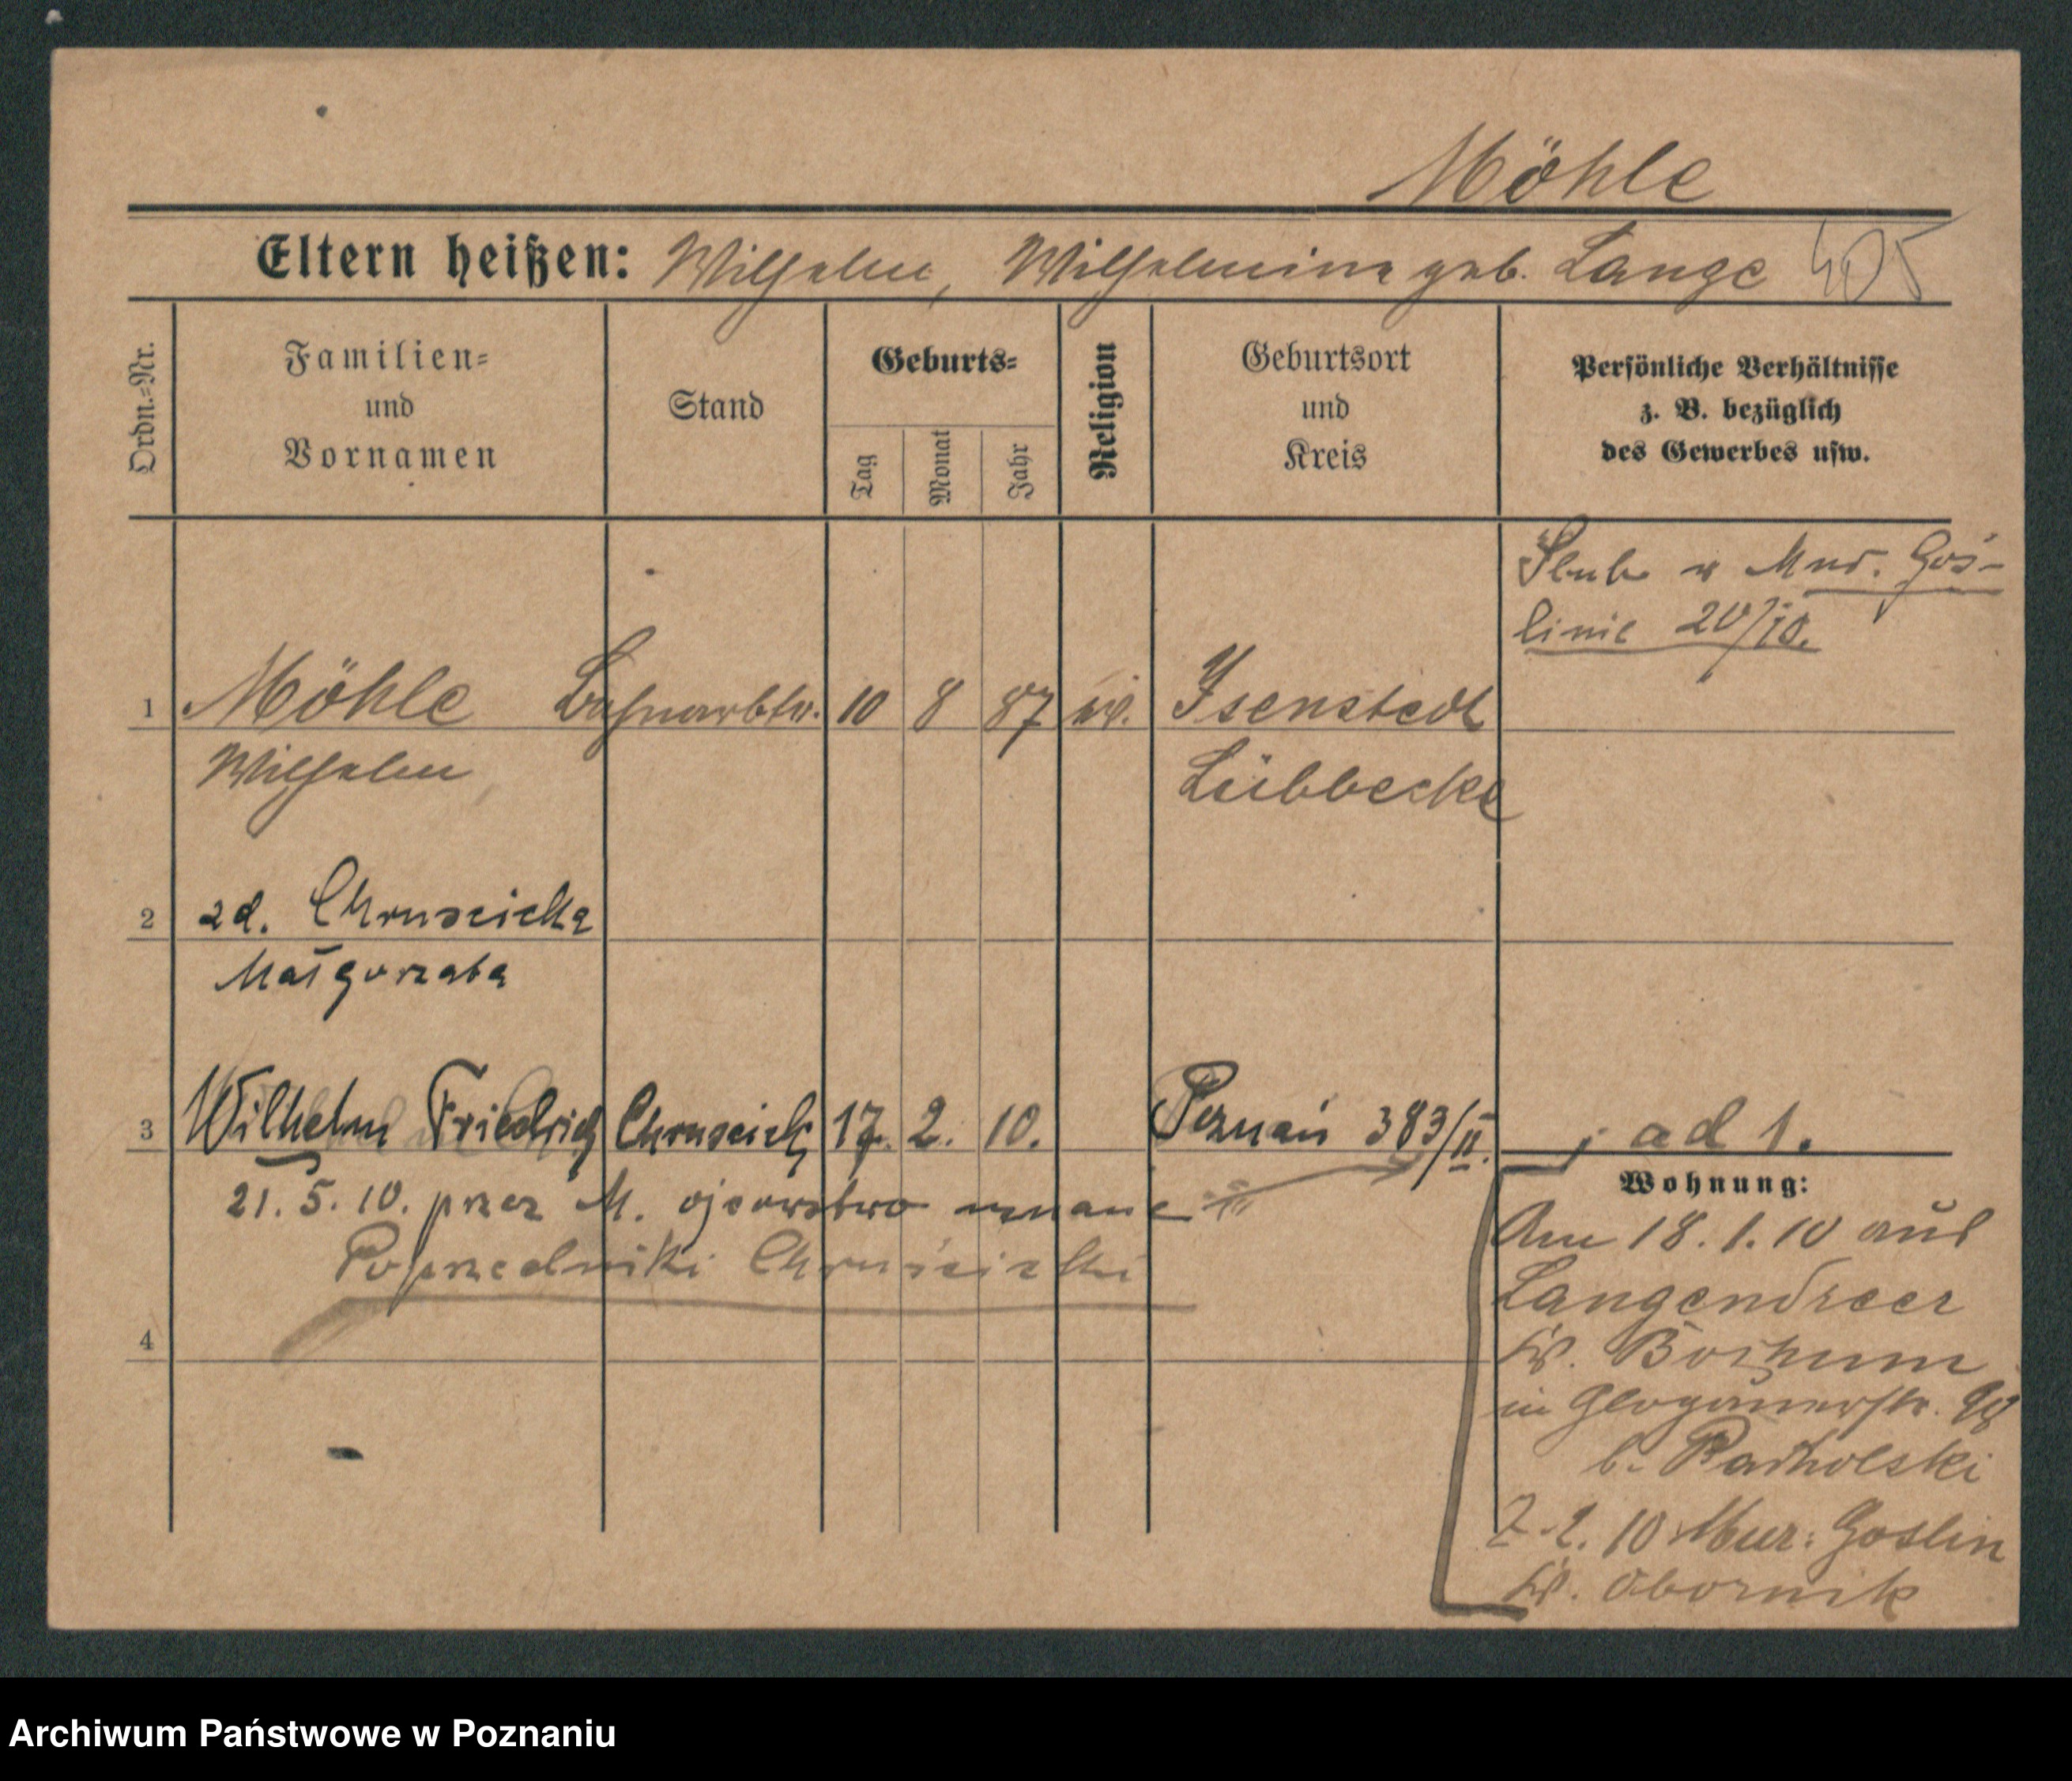 Möhle
Eltern heißen: Wilhelm, Wilhelmine geb. Lange 405
Ordn.=Nr.
Familien=
und
Vornamen
Stand
Geburts=
Tag
Monat
Jahr
Religion
Geburtsort
und
Kreis
Persönliche Verhältnisse
z. B. bezüglich
des Gewerbes usw.
Ślub w Mur. Goś-
linie 20/10.
1 Möhle Bahnarbtr. 10 8 87 Isenstedt
Wilhelm Lübbecke
2 zd. Chruścicka
Małgorzata
3 Wilhelm Friedrich Chruścick 17. 2. 10. Poznań 383/II. ad 1.
21. 5. 10. przez M. ojcowstwo uznane
Poprzedniki Chruścicki
4
Wohnung:
Am 18. 1. 10 aus
Langendreer
Kr. Bochum
in Glogauerstr. 98
b.
2. 10 Mur. Goslin
Kr. Obornik
Archiwum Państwowe w Poznaniu